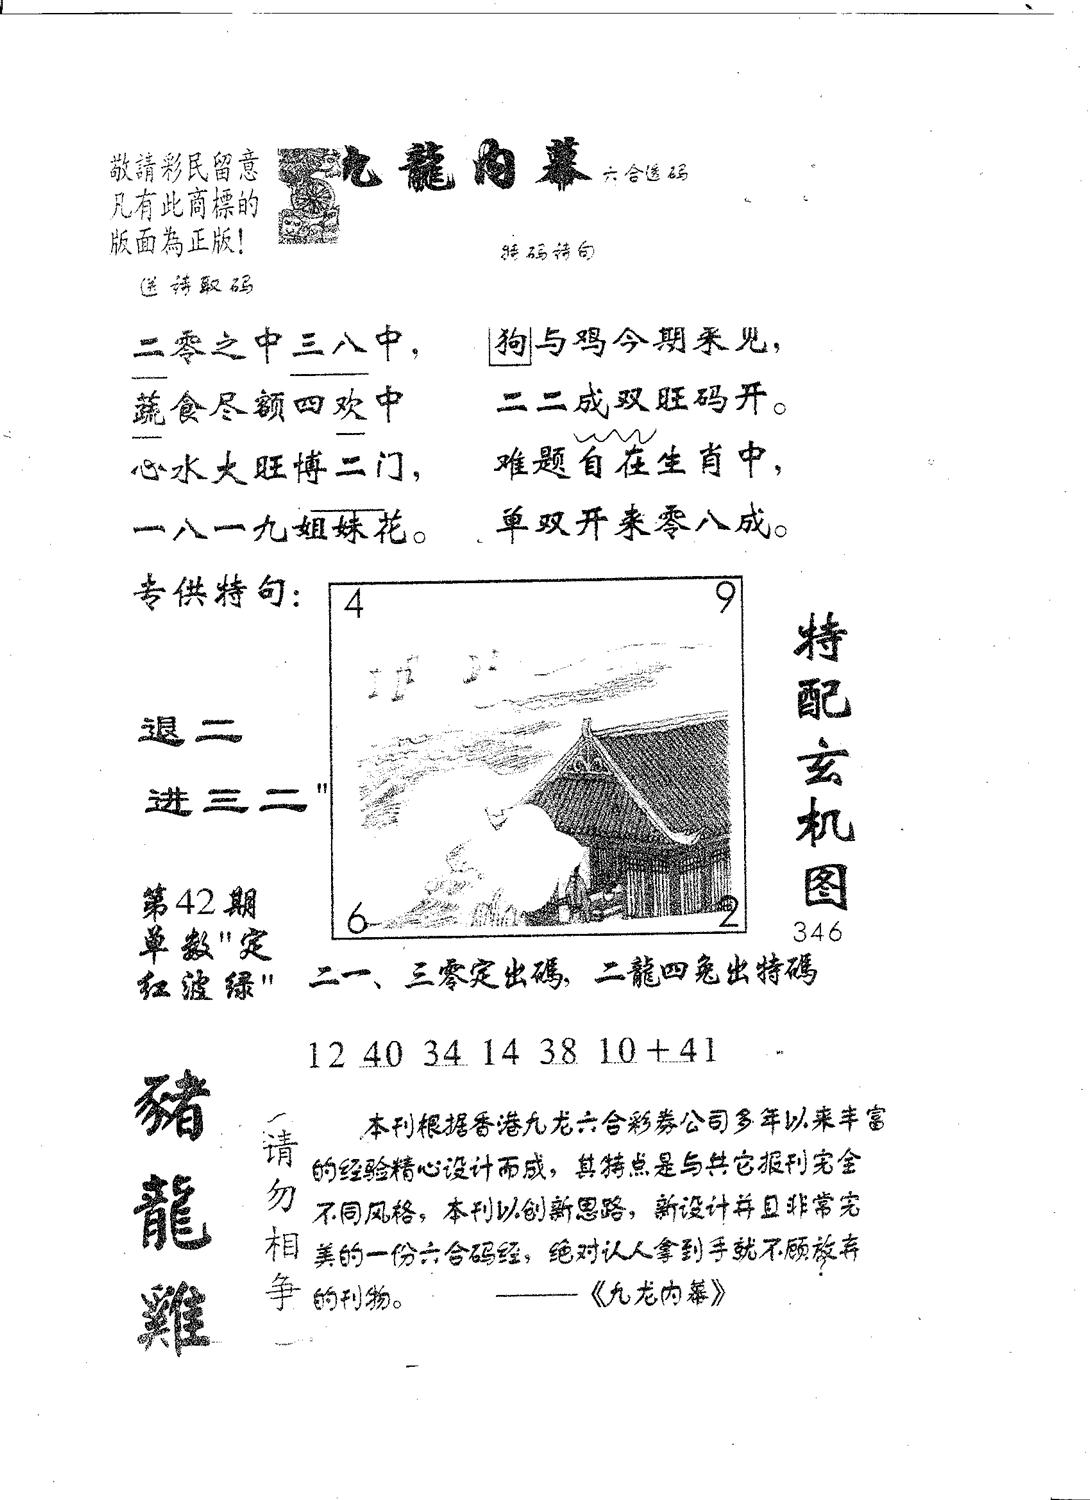 敬請彩民留意
凡有此商標的
版面為正版!
九龍内幕 六合送码
送诗取码
特码诗句
二零之中三八中,
蔬食尽额四欢中
心水大旺博二门,
一八一九姐妹花。
狗与鸡今期来见,
二二成双旺码开。
难题自在生肖中,
单双开来零八成。
专供特句:
退二
进三二"
第42期
单数"定
红波绿"
4 9
6 2
特配玄机图
346
二一、三零定出碼, 二龍四兔出特碼
12 40 34 14 38 10+41
豬龍雞
(请勿相争)
本刊根据香港九龙六合彩券公司多年以来丰富
的经验精心设计而成，其特点是与其它报刊完全
不同风格，本刊以创新思路，新设计并且非常完
美的一份六合码经，绝对认人拿到手就不顾放弃
的刊物。 ——《九龙内幕》